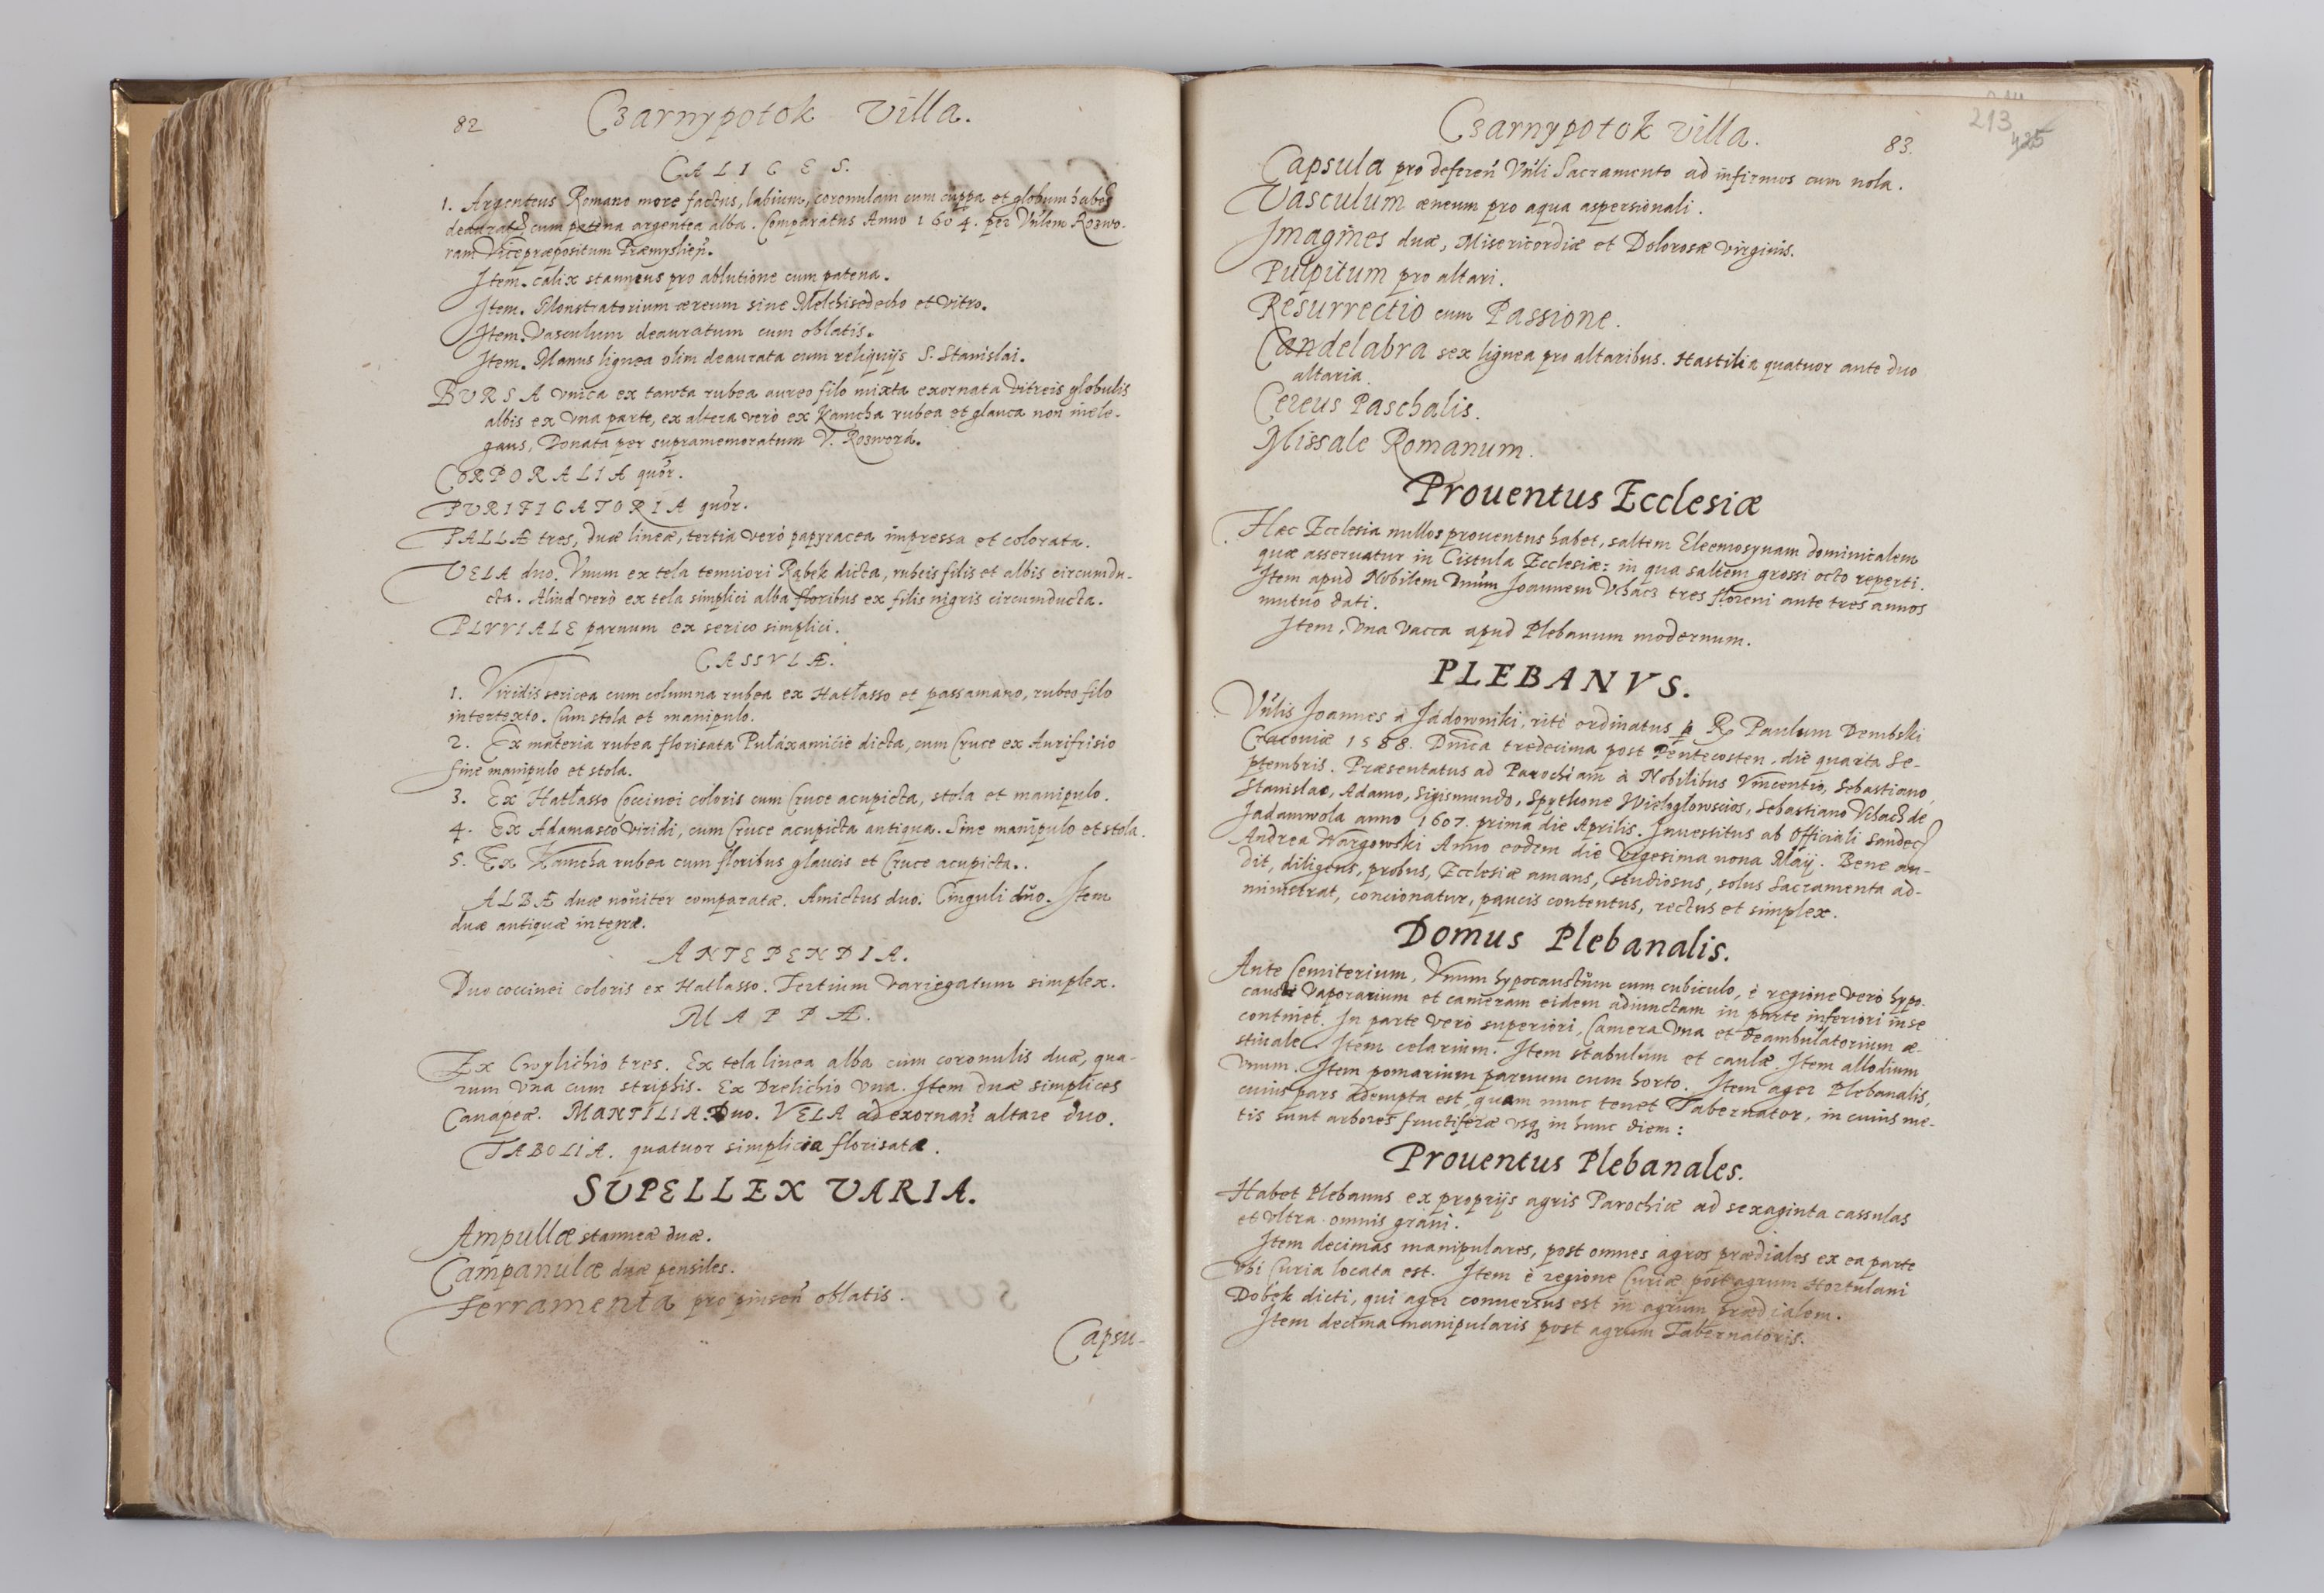 82 Czarnypotok Villa.
CALICES.
1. Argenteus Romano more factus, labium, coronulam cum cuppa et globum habes
deaurat cum patena argentea alba. Comparatus Anno 1604. per Vnlem Rozwo-
ram Vicepræpositum Præmyslien̄.
Item. calix stanneus pro ablutione cum patena.
Item. Monstratorium æreum sine Melchisedecho et vitro.
Item. Vasculum deauratum cum oblatis.
Item. Manus lignea olim deaurata cum reliquijs S. Stanislai.
BURSA vnica ex tawta rubea aureo filo mixta exornata vitreis globulis
albis ex vna parte, ex altera verò ex Kamcha rubea et glauca non inele-
gans, Donata per supramemoratum V. Rozworá.
CORPORALIA quor.
PURIFICATORIA quor.
PALLÆ tres, duæ lineæ, tertia verò papyracea impressa et colorata.
VELA duo. Vnum ex tela tenuiori Rąbek dicta, rubeis filis et albis circumdu-
cta. Aliud verò ex tela simplici alba floribus ex filis nigris circumducta.
PLVVIALE paruum ex serico simplici.
CASSVLÆ.
1. Viridis sericea cum columna rubea ex Hatłasso et passamano, rubeo filo
intertexto. Cum stola et manipulo.
2. Ex materia rubea florisata Pułáxamicie dicta, cum Cruce ex Aurifrisio
sine manipulo et stola.
3. Ex Hatłasso Coccinei coloris cum Cruce acupicta, stola et manipulo.
4. Ex Adamasco viridi, cum Cruce acupicta antiqua. Sine manipulo et stola.
5. Ex Kamcha rubea cum floribus glaucis et Cruce acupicta.
ALBÆ duæ nouiter comparatæ. Amictus duo. Cinguli duo. Item
duæ antiquæ integræ.
ANTEPENDIA.
Duo coccinei coloris ex Hatłasso. Tertium variegatum simplex.
MAPPÆ.
Ex Cwylichio tres. Ex tela linea alba cum coronulis duæ, qua-
rum vna cum striphis. Ex Drelichio vna. Item duæ simplices
Canapeæ. MANTILIA. Duo. VELA ad exornan̄ altare duo.
TABOLIA. quatuor simplicia florisata.
SUPELLEX VARIA.
Ampullæ stanneæ duæ.
Campanulæ duæ pensiles.
Ferramenta pro pinsen̄ oblatis.
Capsu-
Czarnypotok villa. 83.
213
Capsula pro deferen̄ Vnli Sacramento ad infirmos cum nola.
Vasculum æneum pro aqua aspersionali.
Imagines duæ, Misericordiæ et Dolorosæ virginis.
Pulpitum pro altari.
Resurrectio cum Passione.
Candelabra sex lignea pro altaribus. Hastilia quatuor ante duo
altaria.
Cereus Paschalis.
Missale Romanum.
Prouentus Ecclesiæ
Hæc Ecclesia nullos prouentus habet, saltem Eleemosynam dominicalem
quæ asseruatur in Cistula Ecclesiæ: in qua saltem grossi octo reperti.
Item apud Nobilem Dnum Joannem Vchacz tres floreni ante tres annos
mutuo dati.
Item, Vna vacca apud Plebanum modernum.
PLEBANVS.
Vnlis Joannes à Jadowniki, ritè ordinatus p R. Paulum Dembski
Cracouiæ 1588. Dnica tredecima post Pentecosten, die quarta Se-
ptembris. Præsentatus ad Parochiam à Nobilibus Vincentio, Sebastiano,
Stanislao, Adamo, Sigismundo, Spytkone Wieloglowscios, Sebastiano Vchacz de
Jadamwola anno 1607. prima die Aprilis. Inuestitus ab Officiali Sandec
Andrea Wargowski Anno eodem die Vigesima nona Maij. Bene au-
dit, diligens, probus, Ecclesiæ amans, studiosus, solus Sacramenta ad-
ministrat, concionatur, paucis contentus, rectus et simplex.
Domus Plebanalis.
Ante Cemiterium, Vnum hypocaustum cum cubiculo, è regione verò hypo-
causti Vaporarium et cameram eidem adiunctam in parte inferiori in se
continet. In parte verò superiori, Camera vna et deambulatorium æ-
stiuale. Item celarium. Item stabulum et caulæ. Item allodium
vnum. Item pomarium paruum cum horto. Item ager Plebanalis,
cuius pars adempta est, quam nunc tenet Tabernator, in cuius me-
tis sunt arbores fructiferæ vsq in hunc diem:
Prouentus Plebanales.
Habet Plebanus ex proprijs agris Parochiæ ad sexaginta cassulas
et vltra omnis grani.
Item decimas manipulares, post omnes agros prædiales ex ea parte
vbi Curia locata est. Item è regione Curiæ post agrum Hortulani
Dobek dicti, qui ager conuersus est in agrum prædialem.
Item decima manipularis post agrum Tabernatoris.